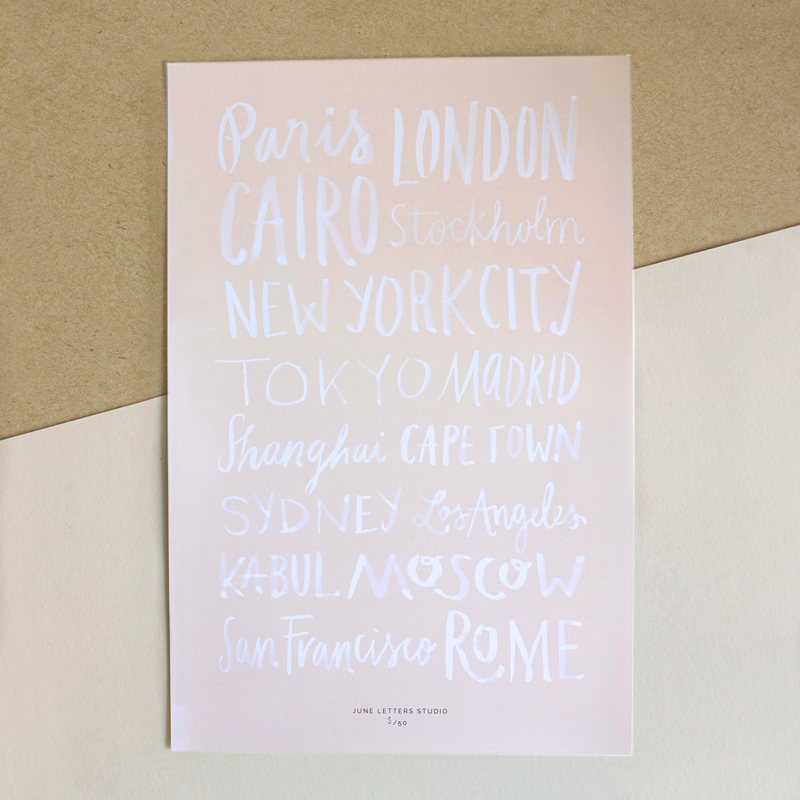 Paris LONDON
CAIRO Stockholm
NEW YORK CITY
TOKYO MADRID
Shanghai CAPE TOWN
SYDNEY Los Angeles
KABUL MOSCOW
San Francisco ROME
JUNE LETTERS STUDIO
3/50